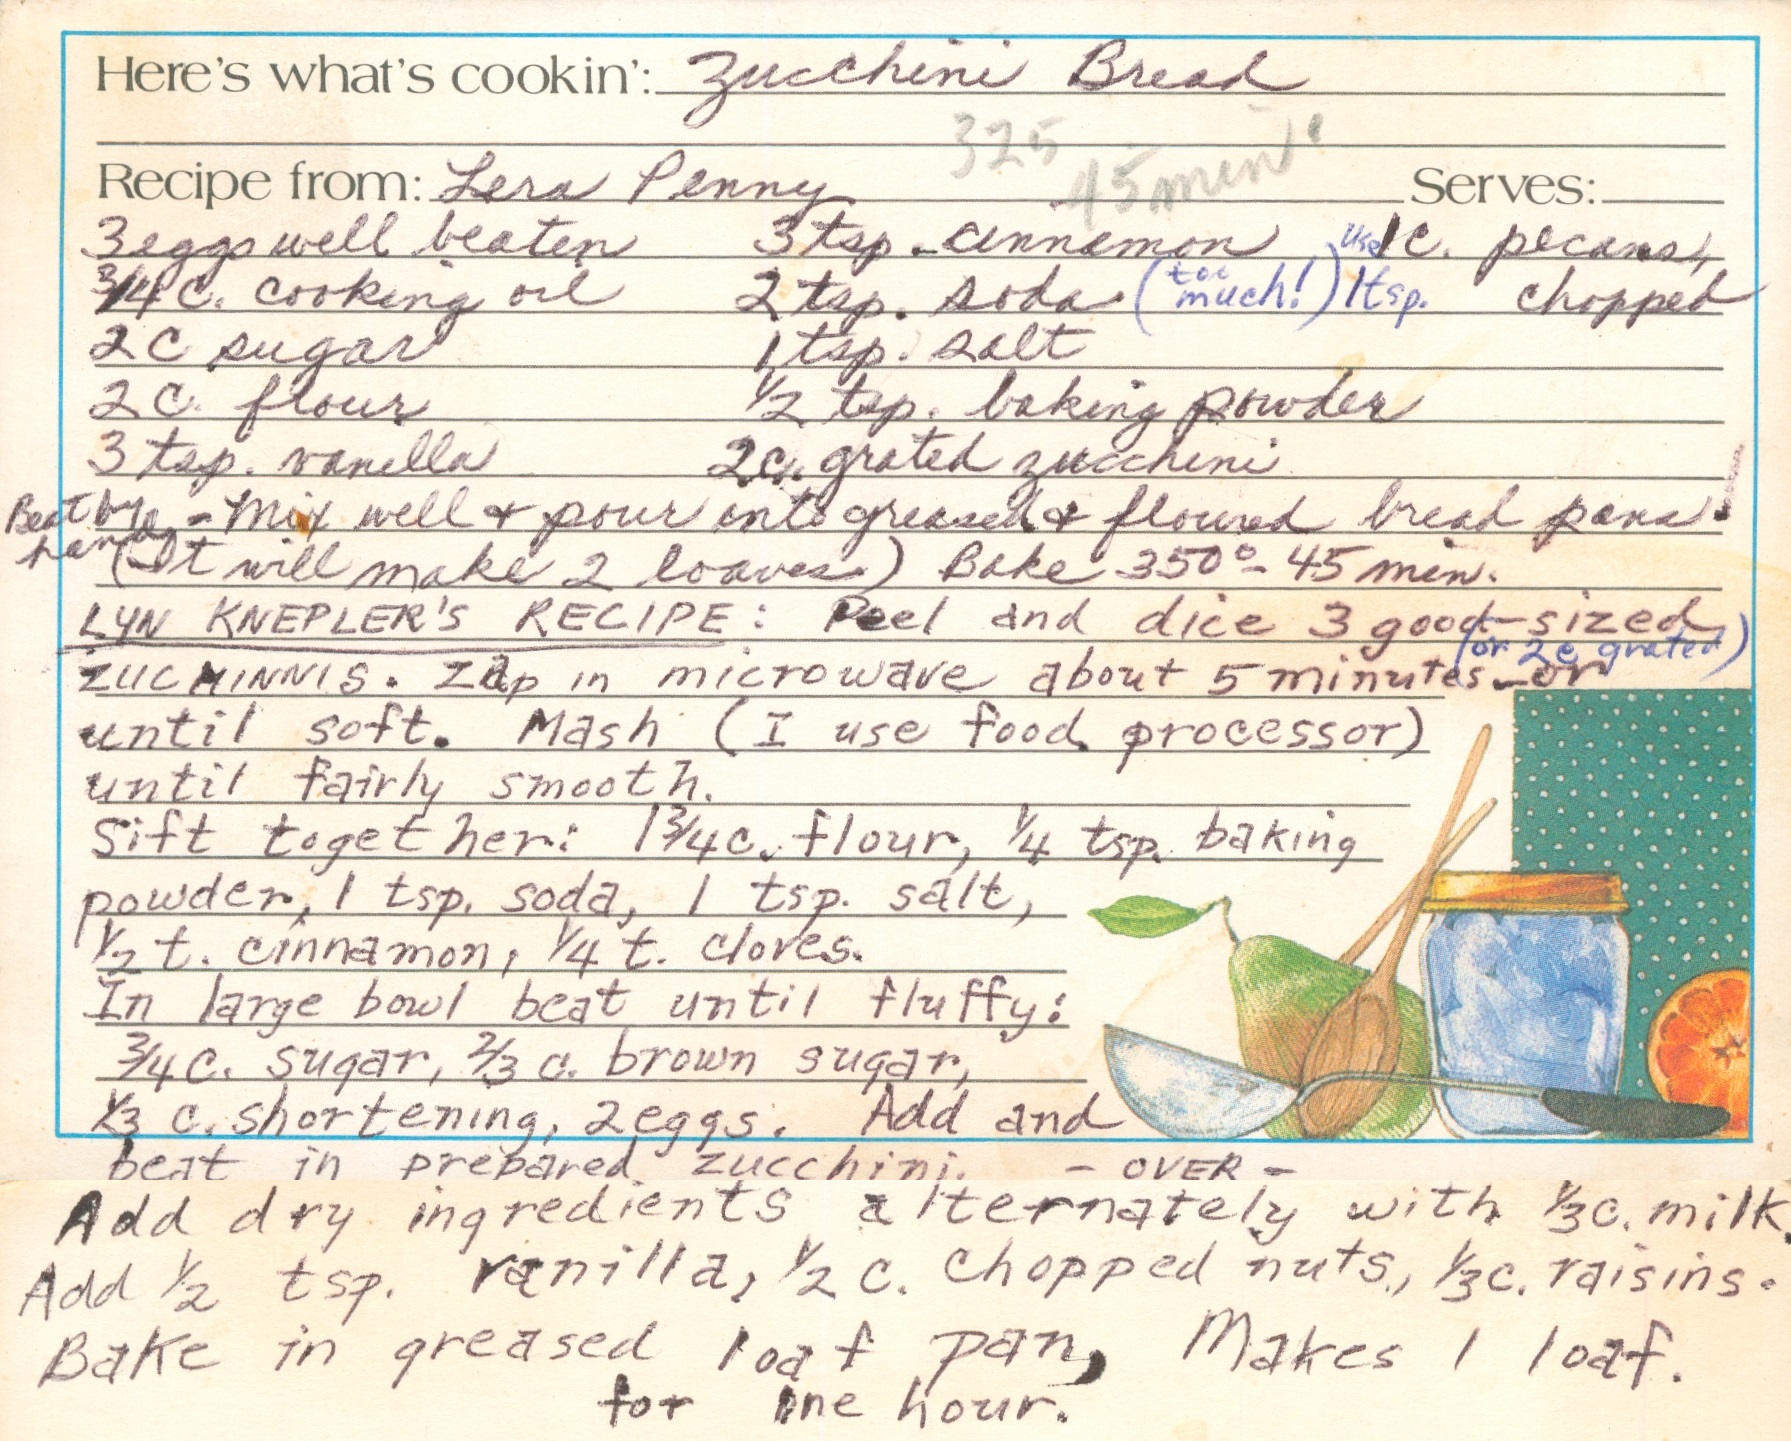 Here's what's cookin': Zucchini Bread
325
45 min.
Recipe from: Lera Penny Serves:
3 eggs well beaten 3 tsp. cinnamon 1 c. pecans,
3/4 c. cooking oil 2 tsp. soda (too much!) use 1 tsp. chopped
2 c sugar 1 tsp. salt
2 c. flour 1/2 tsp. baking powder
3 tsp. vanilla 2 c. grated zucchini
Beat by hand - Mix well & pour into greased & floured bread pans.
(It will make 2 loaves.) Bake 350° - 45 min.
LYN KNEPLER'S RECIPE: Peel and dice 3 good-sized
(or 2 c grated)
ZUCHINNIS. Zap in microwave about 5 minutes - or
until soft. Mash (I use food processor)
until fairly smooth.
Sift together: 1 3/4 c. flour, 1/4 tsp. baking
powder, 1 tsp. soda, 1 tsp. salt,
1/2 t. cinnamon, 1/4 t. cloves.
In large bowl beat until fluffy:
3/4 c. sugar, 2/3 c. brown sugar,
1/3 c. shortening, 2 eggs. Add and
beat in prepared zucchini. - OVER -
Add dry ingredients alternately with 1/3 c. milk.
Add 1/2 tsp. vanilla, 1/2 c. chopped nuts, 1/3 c. raisins.
Bake in greased loaf pan, Makes 1 loaf.
for one hour.